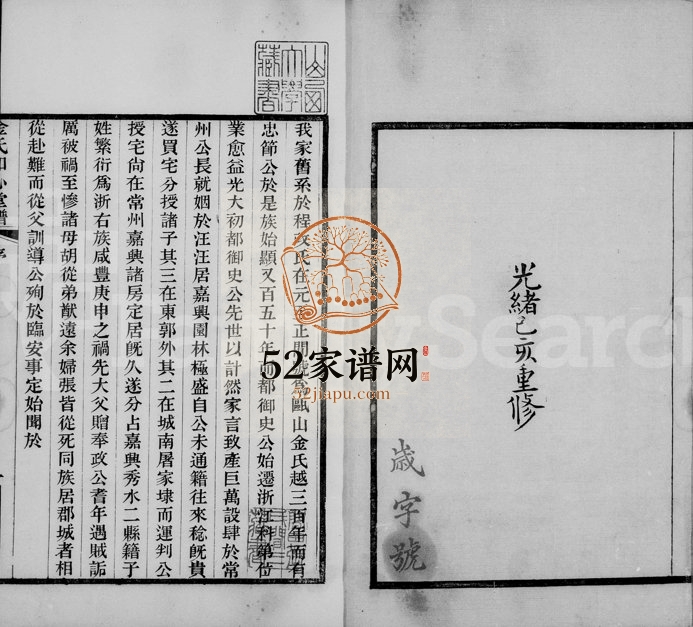 光緒己亥重修
歲字號
山西大學藏書
我家舊系於程
氏在元
正間
甌山金氏越三百年而有
忠節公於是族始顯又百五十年
都御史公始遷浙江科第
業愈益光大初都御史公先世以計然家言致產巨萬設肆於常
州公長就姻於汪汪居嘉興園林極盛自公未通籍往來稔旣貴
遂買宅分授諸子其三在東郭外其二在城南屠家埭而運判公
授宅尙在常州嘉興諸房定居旣久遂分占嘉興秀水二縣籍子
姓繁衍爲浙右族咸豐庚申之禍先大父贈奉政公耆年遇賊詬
厲被禍至慘諸母胡從弟猷遠余婦張皆從死同族居郡城者相
從赴難而從父訓導公殉於臨安事定始聞於
金氏如心堂譜
序
52家谱网
52jiapu.com
Search